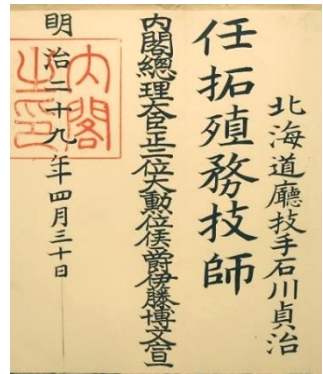 北海道廳技手石川貞治
任拓殖務技師
內閣總理大臣正二位大勳位侯爵伊藤博文宣
明治二十九年四月三十日
內閣之印